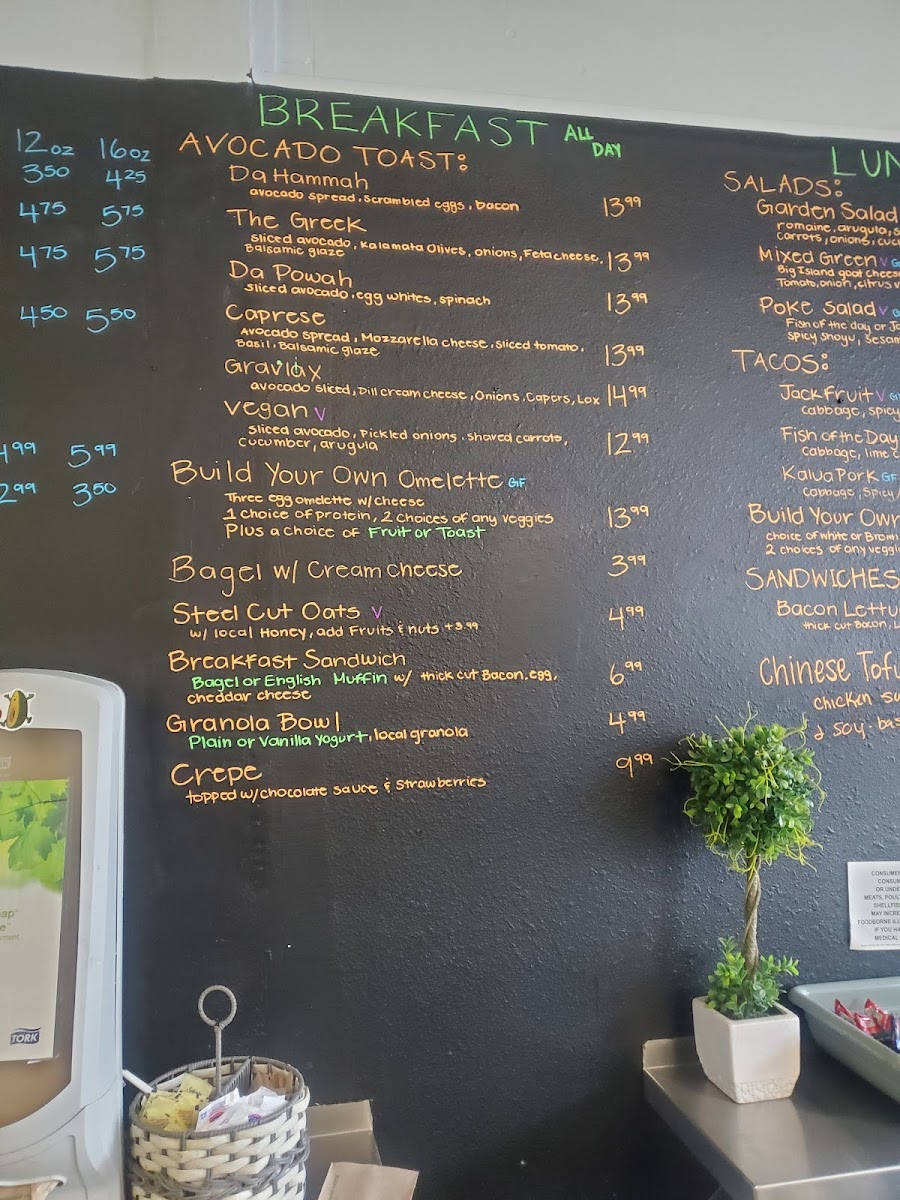 12oz 16oz
3.50 4.25
4.75 5.75
4.75 5.75
4.50 5.50
5.99
3.50
BREAKFAST ALL DAY
AVOCADO TOAST:
Da Hammah
avocado spread, scrambled eggs, bacon 13.99
The Greek
Sliced avocado, Kalamata Olives, onions, Feta cheese,
Balsamic glaze 13.99
Da Powah
Sliced avocado, egg whites, spinach 13.99
Caprese
Avocado spread, Mozzarella cheese, sliced tomato,
Basil, Balsamic glaze 13.99
Gravlax
avocado sliced, Dill cream cheese, Onions, Capers, Lox 14.99
Vegan V
Sliced avocado, Pickled onions, shaved carrots,
cucumber, arugula 12.99
Build Your Own Omelette GF
Three egg omelette w/cheese
1 choice of protein, 2 choices of any veggies 13.99
Plus a choice of Fruit or Toast
Bagel w/ Cream cheese 3.99
Steel Cut Oats V 4.99
w/ local Honey, add Fruits & nuts +3.99
Breakfast Sandwich
Bagel or English Muffin w/ thick cut Bacon, egg,
cheddar cheese 6.99
Granola Bowl 4.99
Plain or Vanilla Yogurt, local granola
Crepe 9.99
topped w/chocolate sauce & Strawberries
SALADS:
Garden Salad
romaine, arugula,
Carrots, onions,
Mixed Green V
Big Island goat
Tomato, onion, citrus
Poke Salad V
Fish of the day or
spicy shoyu,
TACOS:
Jackfruit V
cabbage, spicy
Fish of the Day
Cabbage, lime
Kalua Pork GF
Cabbage, Spicy
Build Your Own
choice of white or
2 choices of any
SANDWICHES
Bacon
thick cut Bacon,
Chinese
chicken
& soy
CONSUM
OR UNDE
MEATS, POUL
SHELLFIS
MAY INCRE
FOODBORNE ILL
IF YOU HA
MEDICAL
TORK